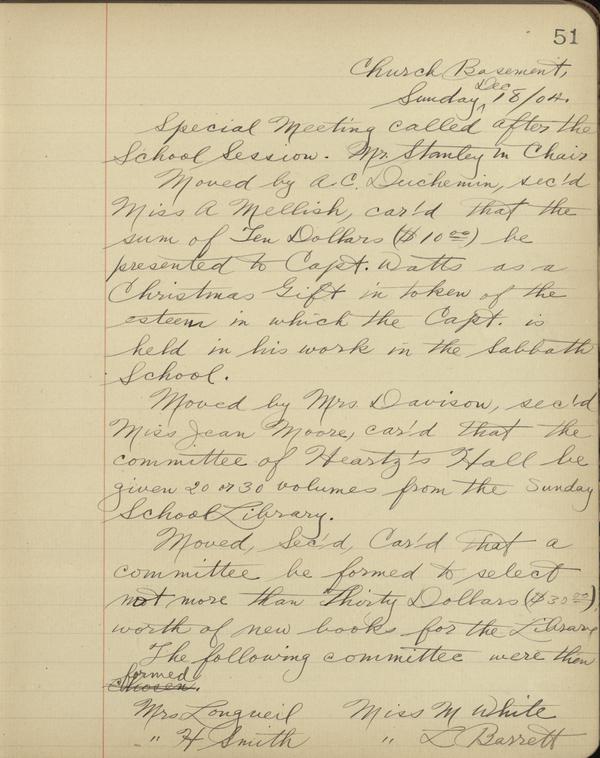 51
Church Basement,
Sunday, Dec 18/04.
Special Meeting called after the
School Session. Mr. Stanley in Chair
Moved by A.C. Duchemin, sec'd
Miss A Mellish, car'd that the
sum of Ten Dollars ($10.00) be
presented to Capt. Watts as a
Christmas Gift in token of the
esteem in which the Capt. is
held in his work in the Sabbath
School.
Moved by Mrs. Davison, sec'd
Miss Jean Moore, car'd that the
committee of Heartz's Hall be
given 20 or 30 volumes from the Sunday
School Library.
Moved, Sec'd, Car'd that a
committee be formed to select
not more than Thirty Dollars ($30.00)
worth of new books for the Library
The following committee were then
formed
chosen.
Mrs Longueil Miss M White
" H Smith " L Barrett